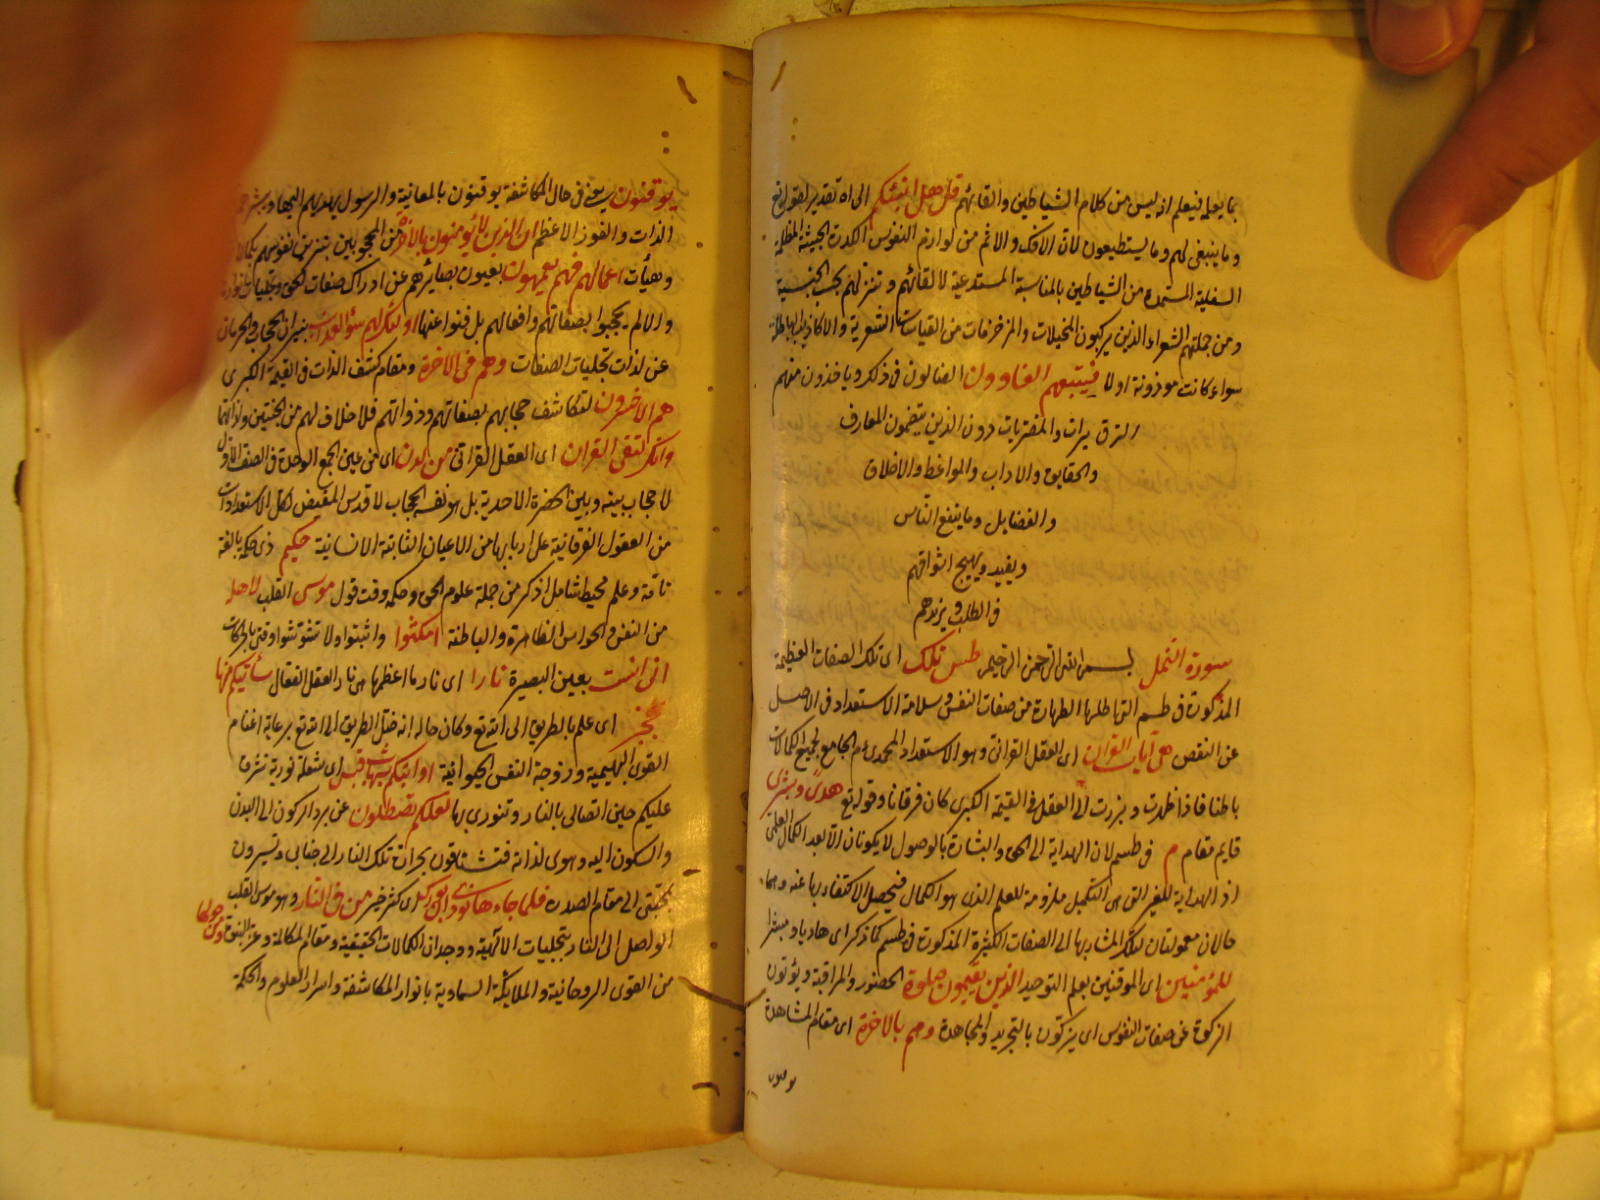 بالجملة فيعلم انه ليس من كلام الشياطين والقائهم قل هل انبئكم الى اه تقدير لقوله تع
وما ينبغى لهم وما يستطيعون لان الافك والاثم من لوازم النفوس الكدرة الخبيثة المظلمة
السفلية المستمدة من الشياطين بالمناسبة المستدعية لالقائهم وتنزلهم بحسب الجنسية
ومن جملتهم الشعراء الذين يركبون المخيلات والمزخرفات من القياسات الشعرية والاكاذيب الباطلة
سواء كانت موزونة اولا فيتبعهم الغاوون الضالون فى ذلك وياخذون منهم
التزويرات والمفتريات دون الذين ينظمون المعارف
والحقايق والاداب والمواعظ والاخلاق
والفضايل وما ينفع الناس
ويفيد ويهيج اشواقهم
فى الطلب ويزيدهم
سورة النمل بسم الله الرحمن الرحيم طس تلك اى تلك الصفات العظيمة
المذكورة فى طسم التى اصلها الطهارة من صفات النفس وسلامة الاستعداد فى الاصل
عن النقص هى آيات القران اى العقل القرانى وهو الاستعداد المحمدى م الجامع لجميع الكمالات
باطنا فاذا ظهرت وبرزت الى العقل فى القيمة الكبرى كان فرقانا وقوله تع هدى وبشرى
قايم مقام م فى طسم لان الهداية الى الحق والبشارة بالوصول لا يكونان الا بعد الكمال العلمى
اذ الهداية للغير التى هى التكميل ملزومة للعلم الذى هو الكمال فيحصل الاكتفاء بها عنه وهما
حالان معمولتان لتلك المشار بها الى الصفات الكثيرة المذكورة فى طسم كما ذكر اى هاديا ومبشرا
للمؤمنين اى الموقنين بعلم التوحيد الذين يقيمون صلوة الحضور والمراقبة ويؤتون
الزكوة عن صفات النفوس اى يزكون بالتجريد والمجاهدة وهم بالاخرة اى مقام المشاهدة
يوقنون
يوقنون يعنى فى حال المكاشفة يوقنون بالمعاينة والرسول يهديهم اليها ويبشرهم
الذات والفوز الاعظم ان الذين لا يؤمنون بالاخرة من المحجوبين بتزيين نفوسهم بكمالات
وهيأت اعمالهم فهم يعمهون بعيون بصائرهم عن ادراك صفات الحق وتجليات انوارها
والا لم يحجبوا بصفاتهم وافعالهم بل فنوا عنها اولئك لهم سؤ العذاب بنيران الحجاب والحرمان
عن لذات تجليات الصفات وهم فى الاخرة ومقام كشف الذات فى القيمة الكبرى
هم الاخسرون لتكاشف حجابهم بصفاتهم وذواتهم فلا خلاف لهم من الجنتين ولذاتها
وانك لتلقى القران اى العقل القرانى من لدن اى من عين الجمع الوحدة فى الصف الاول
لا حجاب بينه وبين الحضرة الاحدية بل هو نفسه الحجاب لاقدس المفيض لكل الاستعدادات
من العقول الفرقانية على اربابها من الاعيان الثابتة الانسانية حكيم ذى حكمة بالغة
تامة وعلم محيط شامل اذكر من جملة علوم الحق وحكمه وقت قول موسى القلب لاهله
من النفس والحواس الظاهرة والباطنة امكثوا واثبتوا ولا تشوشوا وقتى بالحركات
انى انست بعين البصيرة نارا اى نار ما اعظمها هى نار العقل الفعال سأتيكم منها
بخبر اى علم بالطريق الى الله تع وكان حاله انه ضل الطريق الى الله تع برعاية اغنام
القوى البهيمية وزوجة النفس الحيوانية او اتيكم بشهاب قبس اى بشعلة نورية تشرق
عليكم حين اتصالى بالنار وتنورى بها لعلكم تصطلون عن برد الركون الى البدن
والسكون اليه وهوى لذاته فتشتاقون بحرارة تلك النار الى جنابى وتسيرون
بحبتى الى مقام الصدر فلما جاءها نودى ان بورك اى كثر خير من فى النار وهو موسى القلب
الواصل الى النار بتجليات الالهية ووجدان الكمالات الحقيقية ومقام المكالمة وعز النبوة ومن حولها
من القوى الروحانية والملايكة السماوية بانوار المكاشفة واسرار العلوم والحكمة